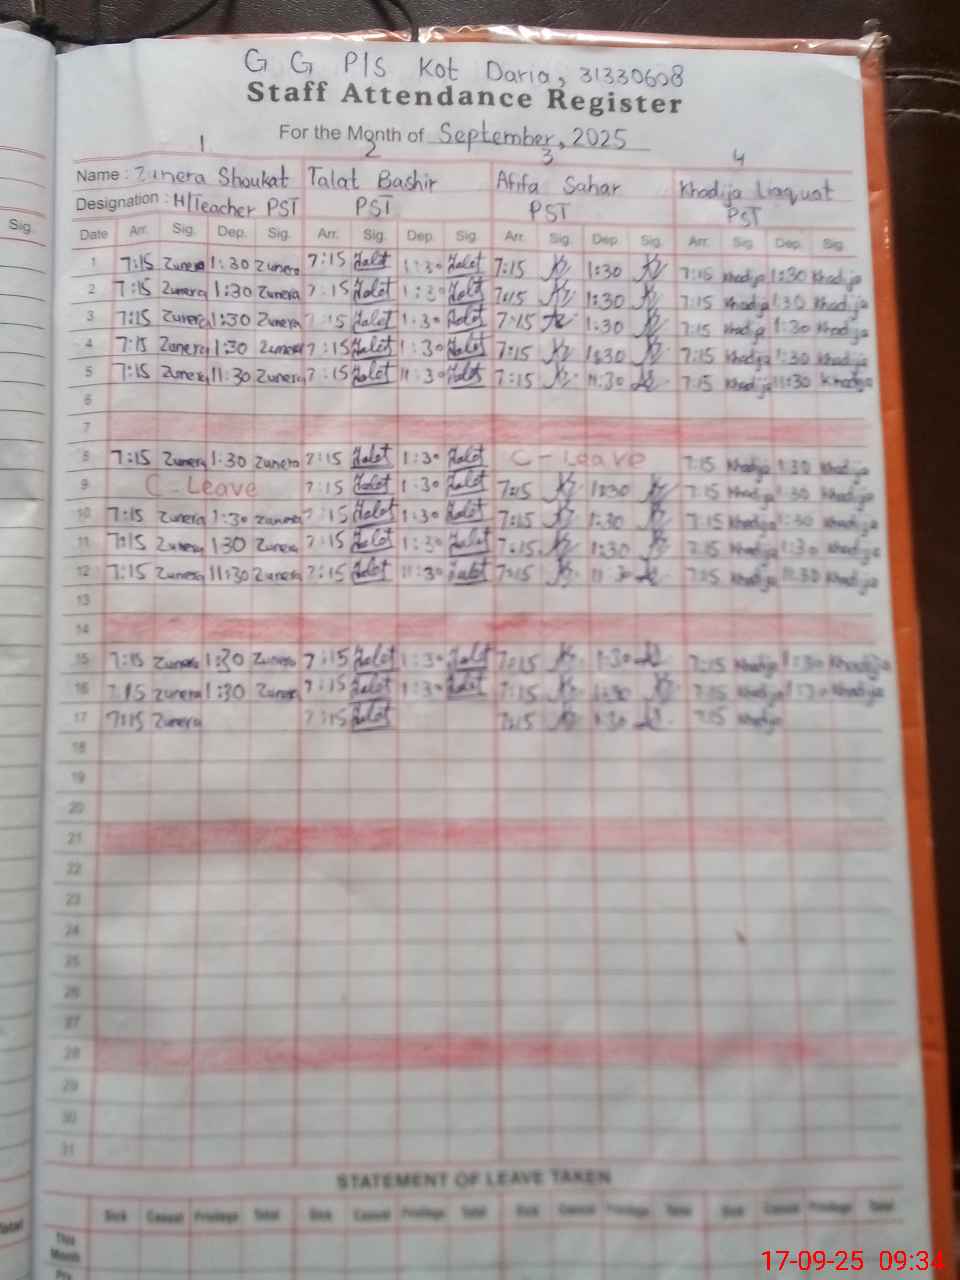 G G P/S Kot Daria, 31330608
Staff Attendance Register
For the Month of September, 2025
1 2 3 4
Name : Zunera Shoukat Talat Bashir Afifa Sahar Khadija Liaquat
Designation : H/Teacher PST PST PST PST
Sig.
Date Arr. Sig. Dep. Sig. Arr. Sig. Dep. Sig. Arr. Sig. Dep. Sig. Arr. Sig. Dep. Sig.
1 7:15 Zunera 1:30 Zunera 7:15 Talat 1:30 Talat 7:15 1:30 7:15 Khadija 1:30 Khadija
2 7:15 Zunera 1:30 Zunera 7:15 Talat 1:30 Talat 7:15 1:30 7:15 Khadija 1:30 Khadija
3 7:15 Zunera 1:30 Zunera 7:15 Talat 1:30 Talat 7:15 1:30 7:15 Khadija 1:30 Khadija
4 7:15 Zunera 1:30 Zunera 7:15 Talat 1:30 Talat 7:15 1:30 7:15 Khadija 1:30 Khadija
5 7:15 Zunera 11:30 Zunera 7:15 Talat 11:30 Talat 7:15 11:30 7:15 Khadija 11:30 Khadija
6
7
8 7:15 Zunera 1:30 Zunera 7:15 Talat 1:30 Talat C - Leave 7:15 Khadija 1:30 Khadija
9 C - Leave 7:15 Talat 1:30 Talat 7:15 1:30 7:15 Khadija 1:30 Khadija
10 7:15 Zunera 1:30 Zunera 7:15 Talat 1:30 Talat 7:15 1:30 7:15 Khadija 1:30 Khadija
11 7:15 Zunera 1:30 Zunera 7:15 Talat 1:30 Talat 7:15 1:30 7:15 Khadija 1:30 Khadija
12 7:15 Zunera 11:30 Zunera 7:15 Talat 11:30 Talat 7:15 11:30 7:15 Khadija 11:30 Khadija
13
14
15 7:15 Zunera 1:30 Zunera 7:15 Talat 1:30 Talat 7:15 1:30 7:15 Khadija 1:30 Khadija
16 7:15 Zunera 1:30 Zunera 7:15 Talat 1:30 Talat 7:15 1:30 7:15 Khadija 1:30 Khadija
17 7:15 Zunera 7:15 Talat 7:15 1:30 7:15 Khadija
18
19
20
21
22
23
24
25
26
27
28
29
30
31
STATEMENT OF LEAVE TAKEN
Sick Casual Privilege Total Sick Casual Privilege Total Sick Casual Privilege Total Sick Casual Privilege Total
Total
This Month
17-09-25 09:34